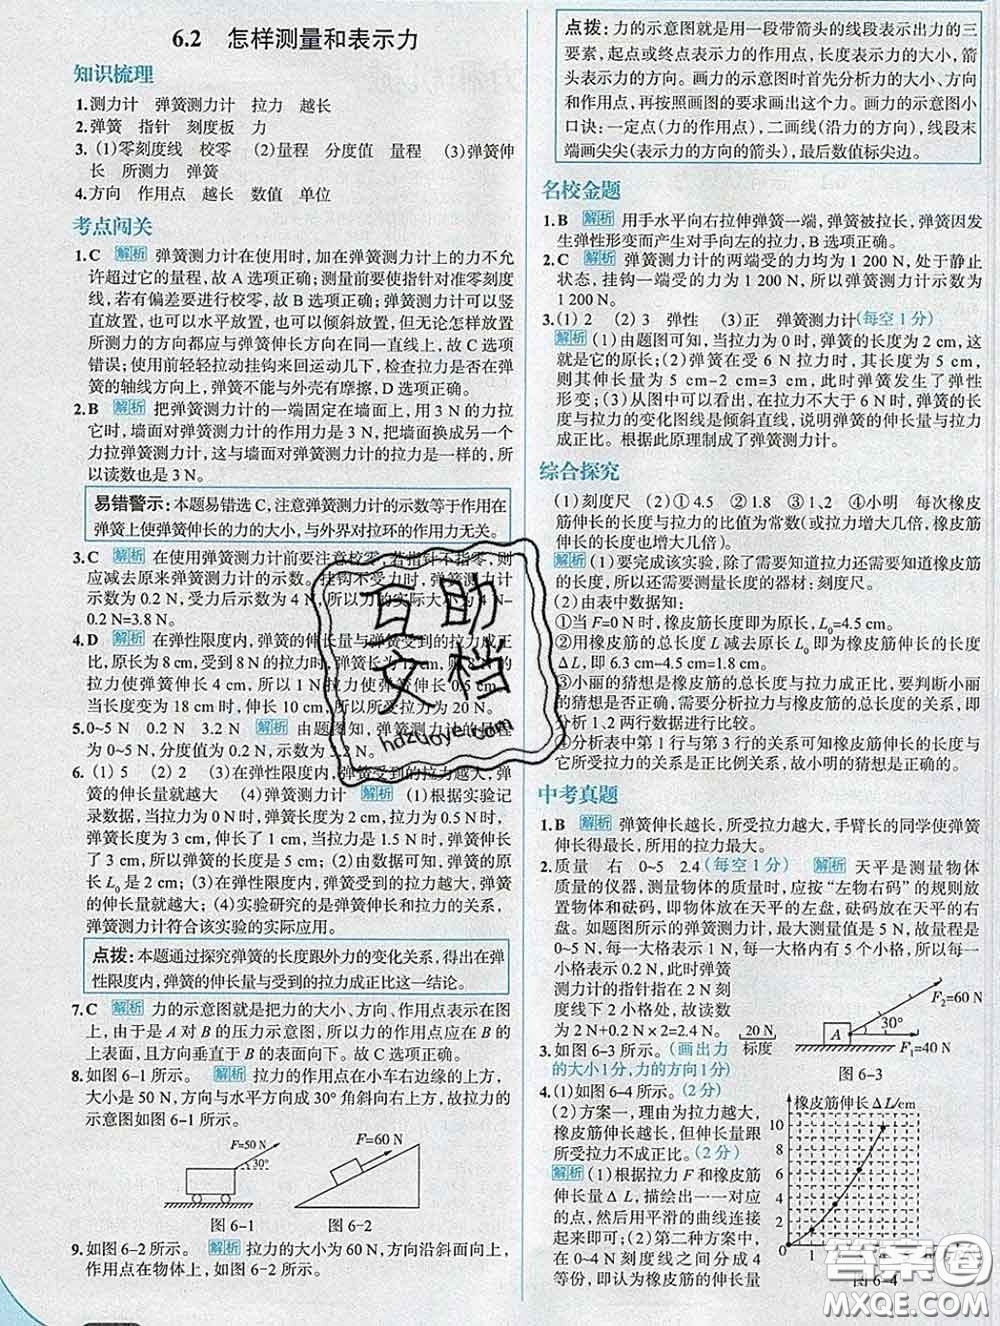 6.2 怎样测量和表示力
知识梳理
1.测力计 弹簧测力计 拉力 越长
2.弹簧 指针 刻度板 力
3.(1)零刻度线 校零 (2)量程 分度值 量程 (3)弹簧伸
长 所测力 弹簧
4.方向 作用点 越长 数值 单位
考点闯关
1.C 解析 弹簧测力计在使用时,加在弹簧测力计上的力不允
许超过它的量程,故 A 选项正确;测量前要使指针对准零刻度
线,若有偏差要进行校零,故 B 选项正确;弹簧测力计可以竖
直放置,也可以水平放置,也可以倾斜放置,但无论怎样放置
所测力的方向都应与弹簧伸长方向在同一直线上,故 C 选项
错误;使用前轻轻拉动挂钩来回运动几下,检查拉力是否在弹
簧的轴线方向上,弹簧不能与外壳有摩擦,D 选项正确。
2.B 解析 把弹簧测力计的一端固定在墙面上,用 3 N 的力拉
它时,墙面对弹簧测力计的作用力是 3 N,把墙面换成另一个
力拉弹簧测力计,这与墙面对弹簧测力计的拉力是一样的,所
以读数也是 3 N。
易错警示:本题易错选 C,注意弹簧测力计的示数等于作用在
弹簧上使弹簧伸长的力的大小,与外界对拉环的作用力无关。
3.C 解析 在使用弹簧测力计前要注意校零,若指针不指零,则
应减去原来弹簧测力计的示数。挂钩不受力时,弹簧测力计
示数为 0.2 N,受力后示数为 4 N,所以力的实际大小为 4 N-
0.2 N=3.8 N。
4.D 解析 在弹性限度内,弹簧的伸长量与弹簧受到的拉力成正
比,原长为 8 cm,受到 8 N的拉力时,弹簧长为 12 cm,则 8 N的
拉力使弹簧伸长了 4 cm,所以 1 N拉力使弹簧伸长 0.5 cm,
当长度变为 18 cm 时,伸长 10 cm,所以拉力为 20 N。
5.0~5 N 0.2 N 3.2 N 解析 由题图知,弹簧测力计的量程
为 0~5 N,分度值为 0.2 N,示数为 3.2 N。
6.(1)5 (2)2 (3)在弹性限度内,弹簧受到的拉力越大,弹
簧的伸长量就越大 (4)弹簧测力计 解析 (1)根据实验记
录数据,当拉力为 0 N时,弹簧长度为 2 cm,拉力为 0.5 N时,
弹簧长度为 3 cm,伸长了 1 cm,当拉力是 1.5 N时,弹簧伸长
量是 3 cm,所以弹簧的长度是 5 cm;(2)由数据可知,弹簧的原
长 L₀ 是 2 cm;(3)在弹性限度内,弹簧受到的拉力越大,弹簧
的伸长量就越大;(4)实验研究的是弹簧伸长和拉力的关系,
弹簧测力计符合该实验的实际应用。
点拨:本题通过探究弹簧的长度跟外力的变化关系,得出在弹
性限度内,弹簧的伸长量与受到的拉力成正比这一结论。
7.C 解析 力的示意图就是把力的大小、方向、作用点在图
上,由于是 A 对 B 的压力示意图,所以力的作用点应在 B 的
上表面,且方向垂直于 B 的表面向下。故 C 选项正确。
8.如图 6-1 所示。 解析 拉力的作用点在小车右边缘的上方,
大小是 50 N,方向与水平方向成 30°角斜向右上方,故拉力的
示意图如图 6-1 所示。
F=50 N
30°
图 6-1
F=60 N
图 6-2
9.如图 6-2 所示。 解析 拉力的大小为 60 N,方向沿斜面向上,
作用点在物体上,如图 6-2 所示。
点拨:力的示意图就是用一段带箭头的线段表示出力的三
要素,起点或终点表示力的作用点,长度表示力的大小,箭
头表示力的方向。画力的示意图时首先分析力的大小、方向
和作用点,再按照画图的要求画出这个力。画力的示意图小
口诀:一定点(力的作用点),二画线(沿力的方向),线段末
端画尖尖(表示力的方向的箭头),最后数值标尖边。
名校金题
1.B 解析 用手水平向右拉伸弹簧一端,弹簧被拉长,弹簧因发
生弹性形变而产生对手向左的拉力,B 选项正确。
2.C 解析 弹簧测力计的两端受的力均为 1 200 N,处于静止
状态,挂钩一端受的力为 1 200 N,所以弹簧测力计示数为
1 200 N。
3.(1)2 (2)3 弹性 (3)正 弹簧测力计(每空 1 分)
解析 (1)由题图可知,当拉力为 0 时,弹簧的长度为 2 cm,这
就是它的原长;(2)弹簧在受 6 N 拉力时,其长度为 5 cm,
则其伸长量为 5 cm-2 cm=3 cm,此时弹簧发生了弹性
形变;(3)从图中可以看出,在拉力不大于 6 N时,弹簧的长
度与拉力的变化图线是倾斜直线,说明弹簧的伸长量与拉力
成正比。根据此原理制成了弹簧测力计。
综合探究
(1)刻度尺 (2)①4.5 ②1.8 ③1、2 ④小明 每次橡皮
筋伸长的长度与拉力的比值为常数(或拉力增大几倍,橡皮筋
伸长的长度也增大几倍)。
解析 (1)要完成该实验,除了需要知道拉力还需要知道橡皮筋
的长度,所以还需要测量长度的器材:刻度尺。
(2)由表中数据知:
①当 F=0 N 时,橡皮筋长度即为原长,L₀=4.5 cm。
②用橡皮筋的总长度 L 减去原长 L₀ 即为橡皮筋伸长的长度
ΔL,即 6.3 cm-4.5 cm=1.8 cm。
③小丽的猜想是橡皮筋的总长度与拉力成正比,要判断小丽
的猜想是否正确,需要分析拉力与橡皮筋的总长度的关系,即
分析 1、2 两行数据进行比较。
④分析表中第 1 行与第 3 行的关系可知橡皮筋伸长的长度与
它所受拉力的关系是正比例关系,故小明的猜想是正确的。
中考真题
1.B 解析 弹簧伸长越长,所受拉力越大,手臂长的同学使弹簧
伸长得最长,所用的拉力最大。
2.质量 右 0~5 2.4(每空 1 分) 解析 天平是测量物体
质量的仪器,测量物体的质量时,应按“左物右码”的规则放
置物体和砝码,即物体放在天平的左盘,砝码放在天平的右
盘。如题图所示的弹簧测力计,最大测量值是 5 N,故量程是
0~5 N,每一大格表示 1 N,每一大格内有 5 个小格,所以每一
小格表示 0.2 N,此时弹簧
测力计的指针指在 2 N 刻
度线下 2 个小格,故读数
为 2 N+0.2 N×2=2.4 N。
3.如图 6-3所示。(画出力
的大小1分,力的方向1分)
F₂=60 N
30°
A
F₁=40 N
20 N
标度
图 6-3
4.(1)如图 6-4 所示。(2分)
(2)方案一,理由为拉力越大,
橡皮筋伸长越长,但伸长量跟
所受拉力不成正比。(2分)
解析 (1)根据拉力 F 和橡皮筋
伸长量 ΔL,描绘出一一对应
的点,然后用平滑的曲线连接
起来即可;(2)第二种方案中,
在 0~4 N 刻度线之间分成 4
等份,即认为橡皮筋的伸长量
橡皮筋伸长 ΔL/cm
10
8
6
4
2
0 1 2
图 6-4
互助
文档
hdzuoye.com
答案圈
MXQE.COM